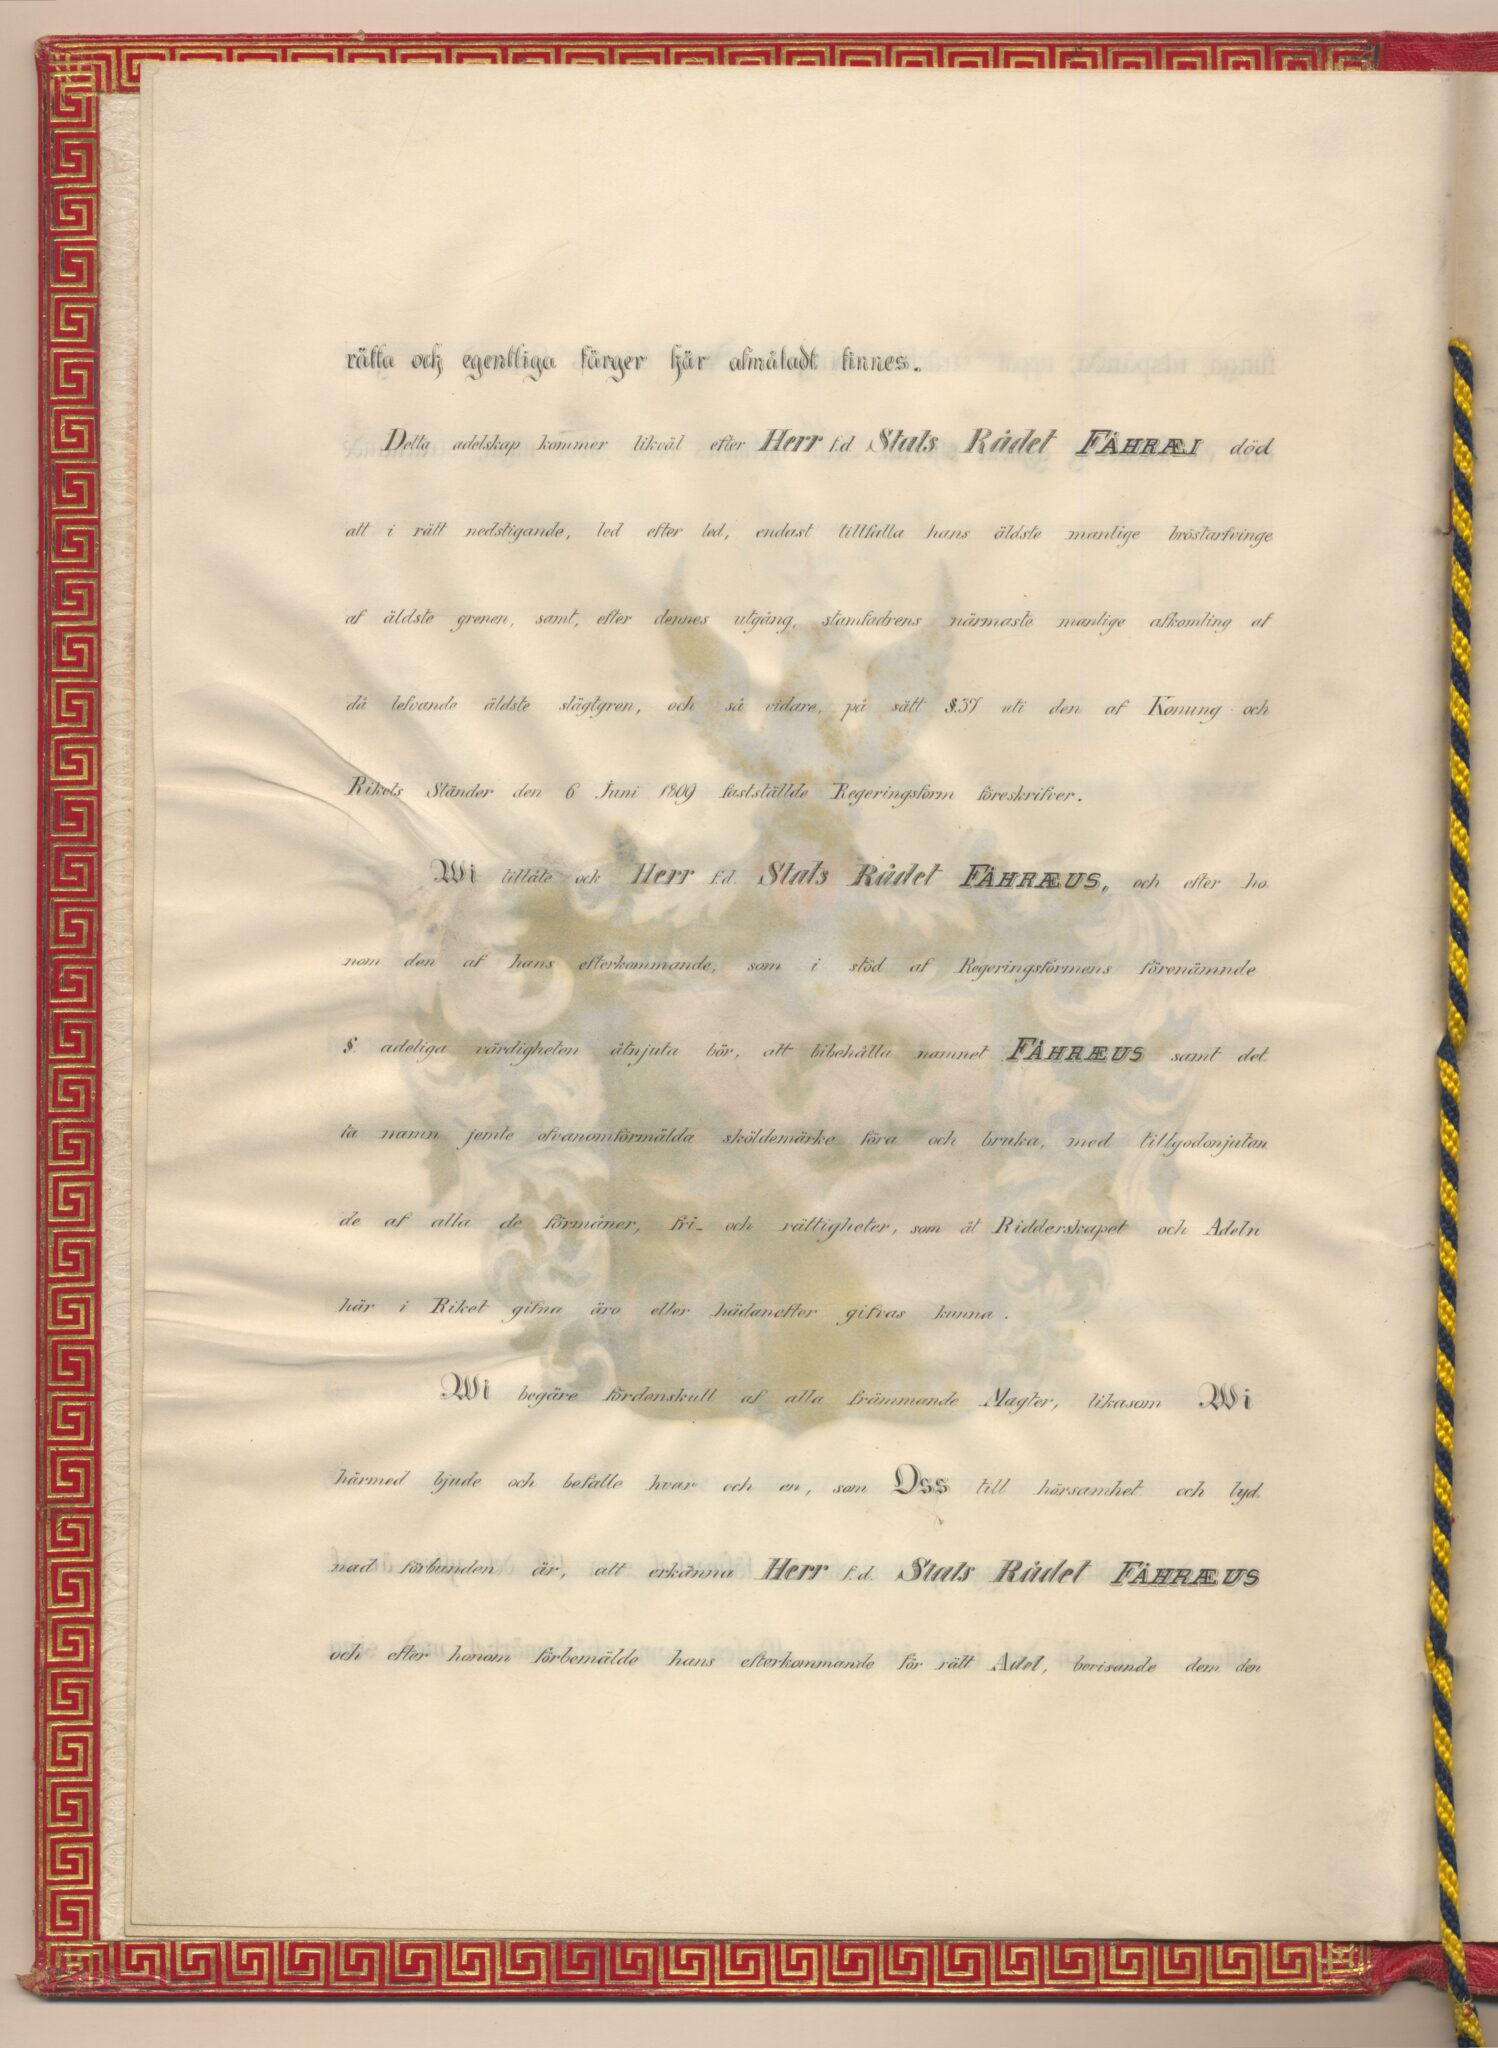 rätta och egentliga färger här afmåladt finnes.
Detta adelskap kommer likväl efter Herr f.d. Stats Rådet FÅHRÆI död
att i rätt nedstigande, led efter led, endast tillfalla hans äldste manlige bröstarfvinge
af äldste grenen, samt, efter dennes utgång, stamfadrens närmaste manlige afkomling af
då lefvande äldste slägtgren, och så vidare, på sätt §.37 uti den af Konung och
Rikets Ständer den 6 Juni 1809 fastställde Regeringsform föreskrifver.
Wi tillåte ock Herr f.d. Stats Rådet FÅHRÆUS, och efter ho-
nom den af hans efterkommande, som i stöd af Regeringsformens förenämnde
§. adeliga värdigheten åtnjuta bör, att bibehålla namnet FÅHRÆUS samt det
ta namn jemte ofvanomförmälda sköldemärke föra och bruka, med tillgodonjutan
de af alla de förmåner, fri- och rättigheter, som åt Ridderskapet och Adeln
här i Riket gifna äro eller hädanefter gifvas kunna.
Wi begäre fördenskull af alla främmande Magter, likasom Wi
härmed bjude och befalle hvar och en, som Oss till hörsamhet och lyd-
nad förbunden är, att erkänna Herr f.d. Stats Rådet FÅHRÆUS
och efter honom förbemälde hans efterkommande för rätt Adel, bevisande dem den